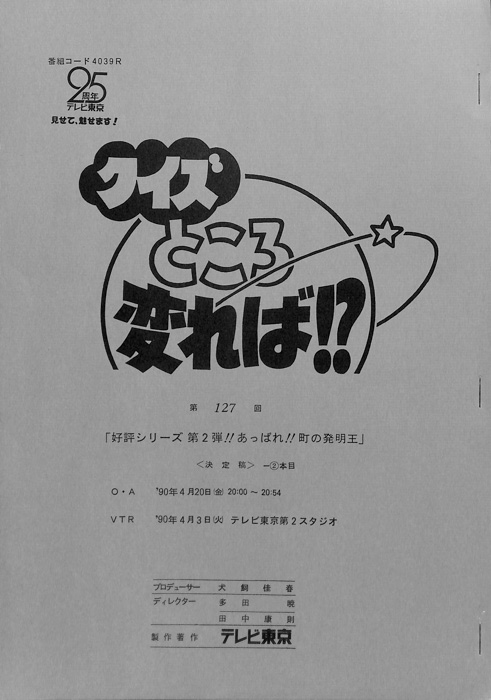 番組コード4039R
25
周年
テレビ東京
見せて、魅せます!
クイズ
ところ
変れば!?
第 127 回
「好評シリーズ 第2弾!!あっぱれ!!町の発明王」
<決定稿> —②本目
O・A '90年4月20日(金) 20:00〜20:54
VTR '90年4月3日(火) テレビ東京第2スタジオ
プロデューサー 犬飼佳春
ディレクター 多田暁
田中康則
製作著作 テレビ東京